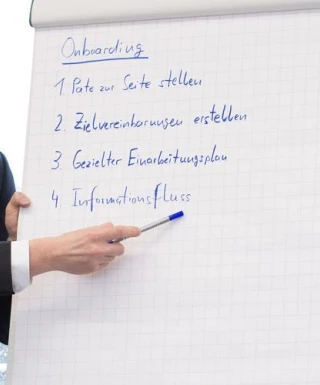 Onboarding
1 Pate zur Seite stellen
2. Zielvereinbarungen erstellen
3. Gezielter Einarbeitungsplan
4. Informationsfluss